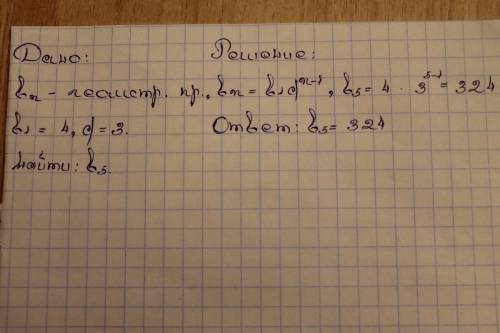 Дано: Решение:
bn - геометр. пр., bn = b1q^n-1, b5 = 4 · 3^5-1 = 324
b1 = 4, q = 3. Ответ: b5 = 324
Найти: b5.